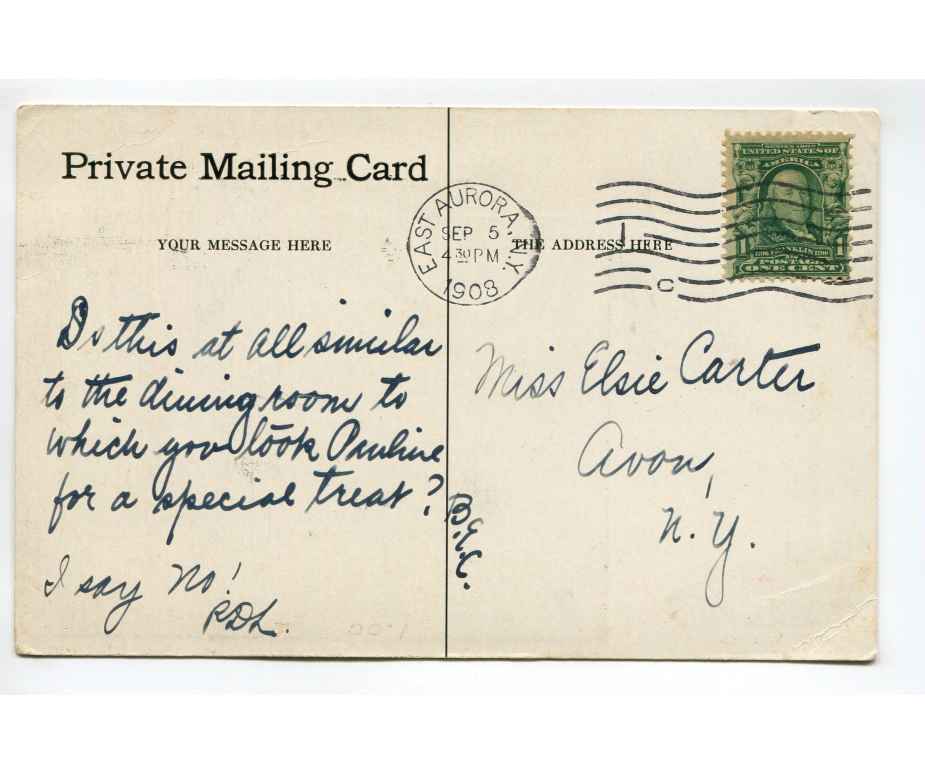 Private Mailing Card
YOUR MESSAGE HERE
THE ADDRESS HERE
EAST AURORA, N.Y.
SEP 5
4 30 PM
1908
C
SERIES 1902
UNITED STATES OF
AMERICA
1 FRANKLIN 1
POSTAGE
ONE CENT
Is this at all similar
to the dining room to
which you took Pauline
for a special treat?
B.E.C.
I say No!
RDL.
Miss Elsie Carter
Avon,
N.Y.
1.00